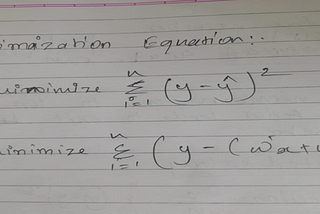 imaization Equation:.
inimize n Σ i=1 (y - ŷ)²
inimize n Σ i=1 (y - (wx+